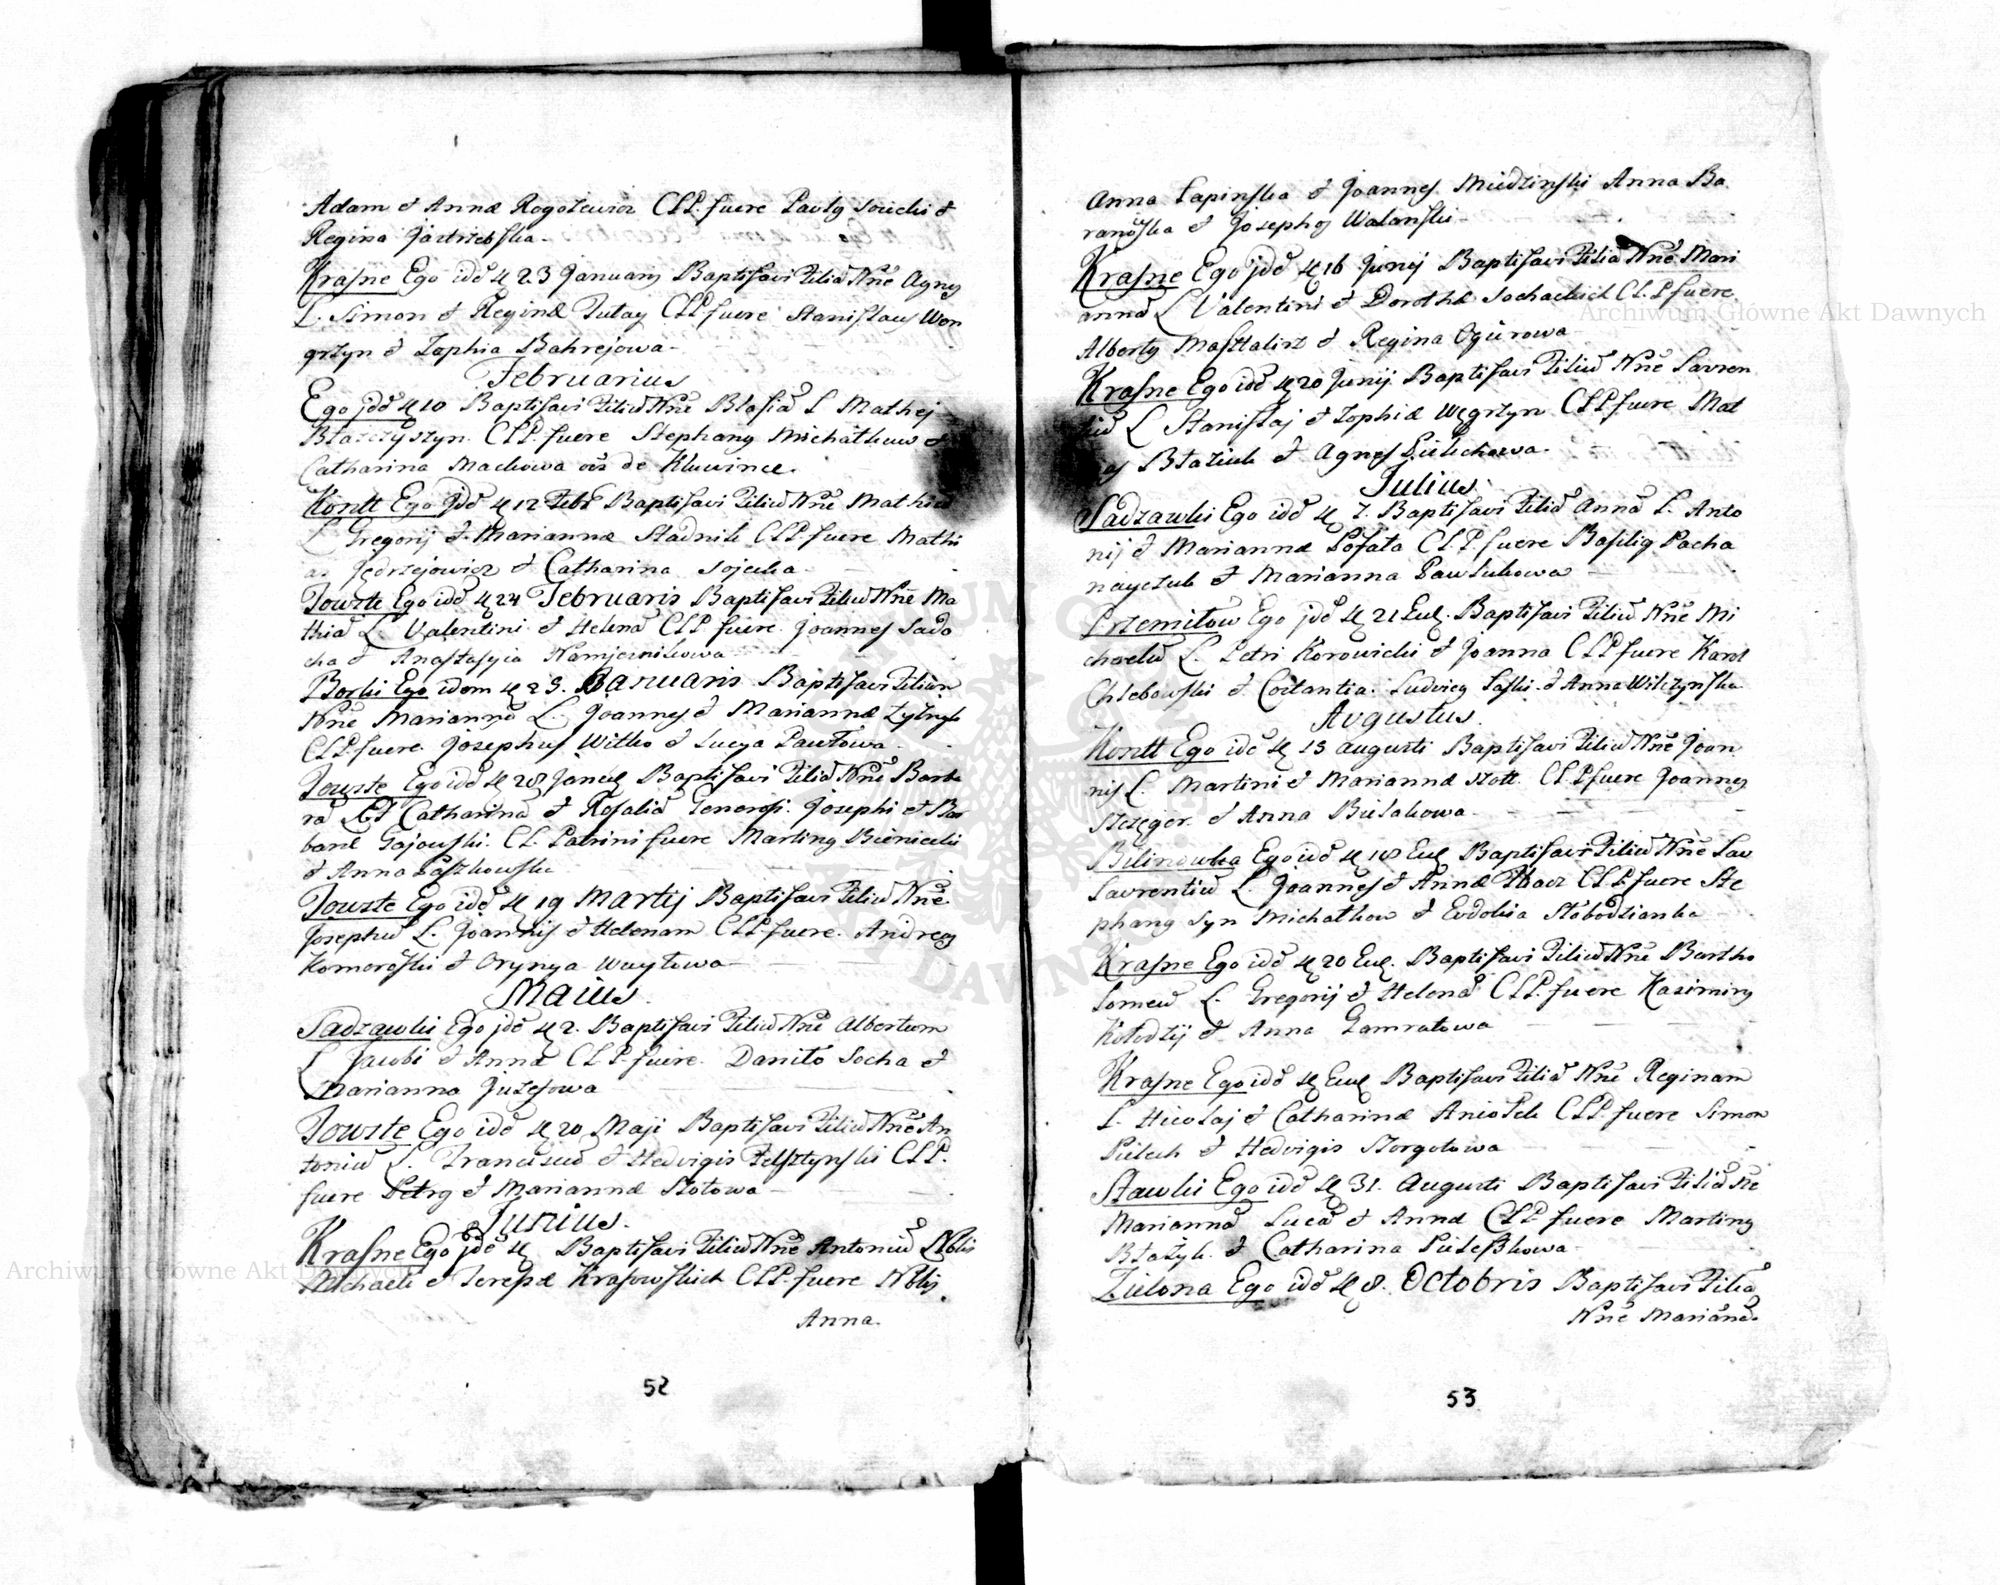 Adam et Annæ Rogozewicz CLP. fuere Pavlg Soucki et
Regina Jastrzebska
Krasne Ego idē 23 Januarij Baptisavi Filiā Nnē Agneg
L. Simon et Reginæ Tutay CLP fuere Stanislaus Wen
grzyn et Zophia Bahrejowa
Februarius
Ego jdē 10 Baptisavi Filiū Nnē Blasiū L Mathej
Błaszczyszyn CLP. fuere Stephang Michałkuw et
Catharina Machowa oēs de Kluwince.
Kontt Ego jdē 12 Feb Baptisavi Filiū Nnē Mathiā
L Gregorij et Mariannæ Stadnik CLP fuere Mathi
as Jędrzejowicz et Catharina Sojecka
Touste Ego idē 24 Februaris Baptisavi Filiū Nnē Ma
thiā L. Valentini et Helenæ CLP fuere Joannes Sado
cha et Anastasyia Namjesnikowa
Borki Ego idem 23. Januaris Baptisavi Filiam
Nnē Mariannā L. Joannes et Mariannæ
CLP fuere Josephus Witko et Lucya Pawłowa
Touste Ego idē 28 Baptisavi Filiā Nnē Barba
rā Catharinā et Rosaliā Generosi. Josephi et Bar
baræ Gajowski. CL. Patrini fuere Marting Bieniecki
et Anna Paszkowska
Touste Ego idē 19 Martij Baptisavi Filiū Nnē
Josephū L. Joannis et Helenam CLP. fuere Andreas
Komoroski et Orynya Wuytowa
Maius.
Sadzawki Ego jdē 2. Baptisavi Filiū Nnē Albertum
L Jacobi et Annæ CLP. fuere Daniło Socha et
Marianna Juzefowa
Touste Ego idē 20 Maji Baptisavi Filiū Nnē An
toniū L. Franciscū et Hedvigis Felsztynski CLP.
fuere Petrg et Mariannæ Słotowa
Junius.
Krasne Ego jdē Baptisavi Filiū Nnē Antoniū Nblis
Michaeli et Teresæ Krasowskich CLP. fuere Nblis
Anna.
52
Anna Lapinska et Joannes Miedzinski Anna Ba
ranoska et Josephg Walanski
Krasne Ego jdē 16 Junij Baptisavi Filiā Nnē Mari
annā L Valentini et Dorothæ Sochackich CLP fuere
Albertg Masztalirz et Regina Ogurowa
Krasne Ego idē 20 Junij Baptisavi Filiū Nnē Lavren
tiū L Stanislaj et Zophiæ Węgrzyn CLP fuere Mat
as Błaziuk et Agnes Pielichowa
Julius
Sadzawki Ego idē 7. Baptisavi Filiā Annā L. Anto
nij et Mariannæ Pofata CLP. fuere Basilig Pacha
nayczuk et Marianna Pawlukowa
Przemiłow Ego jdē 21 Euq. Baptisavi Filiū Nnē Mi
chaelū L. Petri Korowicki et Joanna CLP fuere Karol
Chlebowski et Costantia. Ludvicg Laski et Anna Wilczynska
Avgustus.
Kontt Ego idē 13 augusti Baptisavi Filiū Nnē Joan
nis L. Martini et Mariannæ Szott CLP fuere Joannes
Szczęger et Anna Bielakowa
Bilinowka Ego idē 18 Euq Baptisavi Filiū Nnē Lav
Lavrentiū L. Joannes et Annæ Tkacz CLP. fuere Ste
phang Syn Michałkow et Eudokia Słobodzianka
Krasne Ego idē 20 Euq. Baptisavi Filiū Nnē Bartho
lomeū L. Gregorij et Helenā CLP. fuere Kazimirg
Kołodzij et Anna Gamratowa
Krasne Ego idē Euq Baptisavi Filiā Nnē Reginam
L. Nicolaj et Catharinæ Aniołek CLP. fuere Simon
Pielech et Hedvigis Szorgotowa
Stawki Ego idē 31. Augusti Baptisavi Filiā Nnē
Mariannā Lucæ et Annæ CLP fuere Marting
Błażyk et Catharina Pieleszkowa
Zielona Ego idē 8. Octobris Baptisavi Filiā
Nnē Mariānā
53
Archiwum Główne Akt Dawnych
Archiwum Główne Akt Dawnych